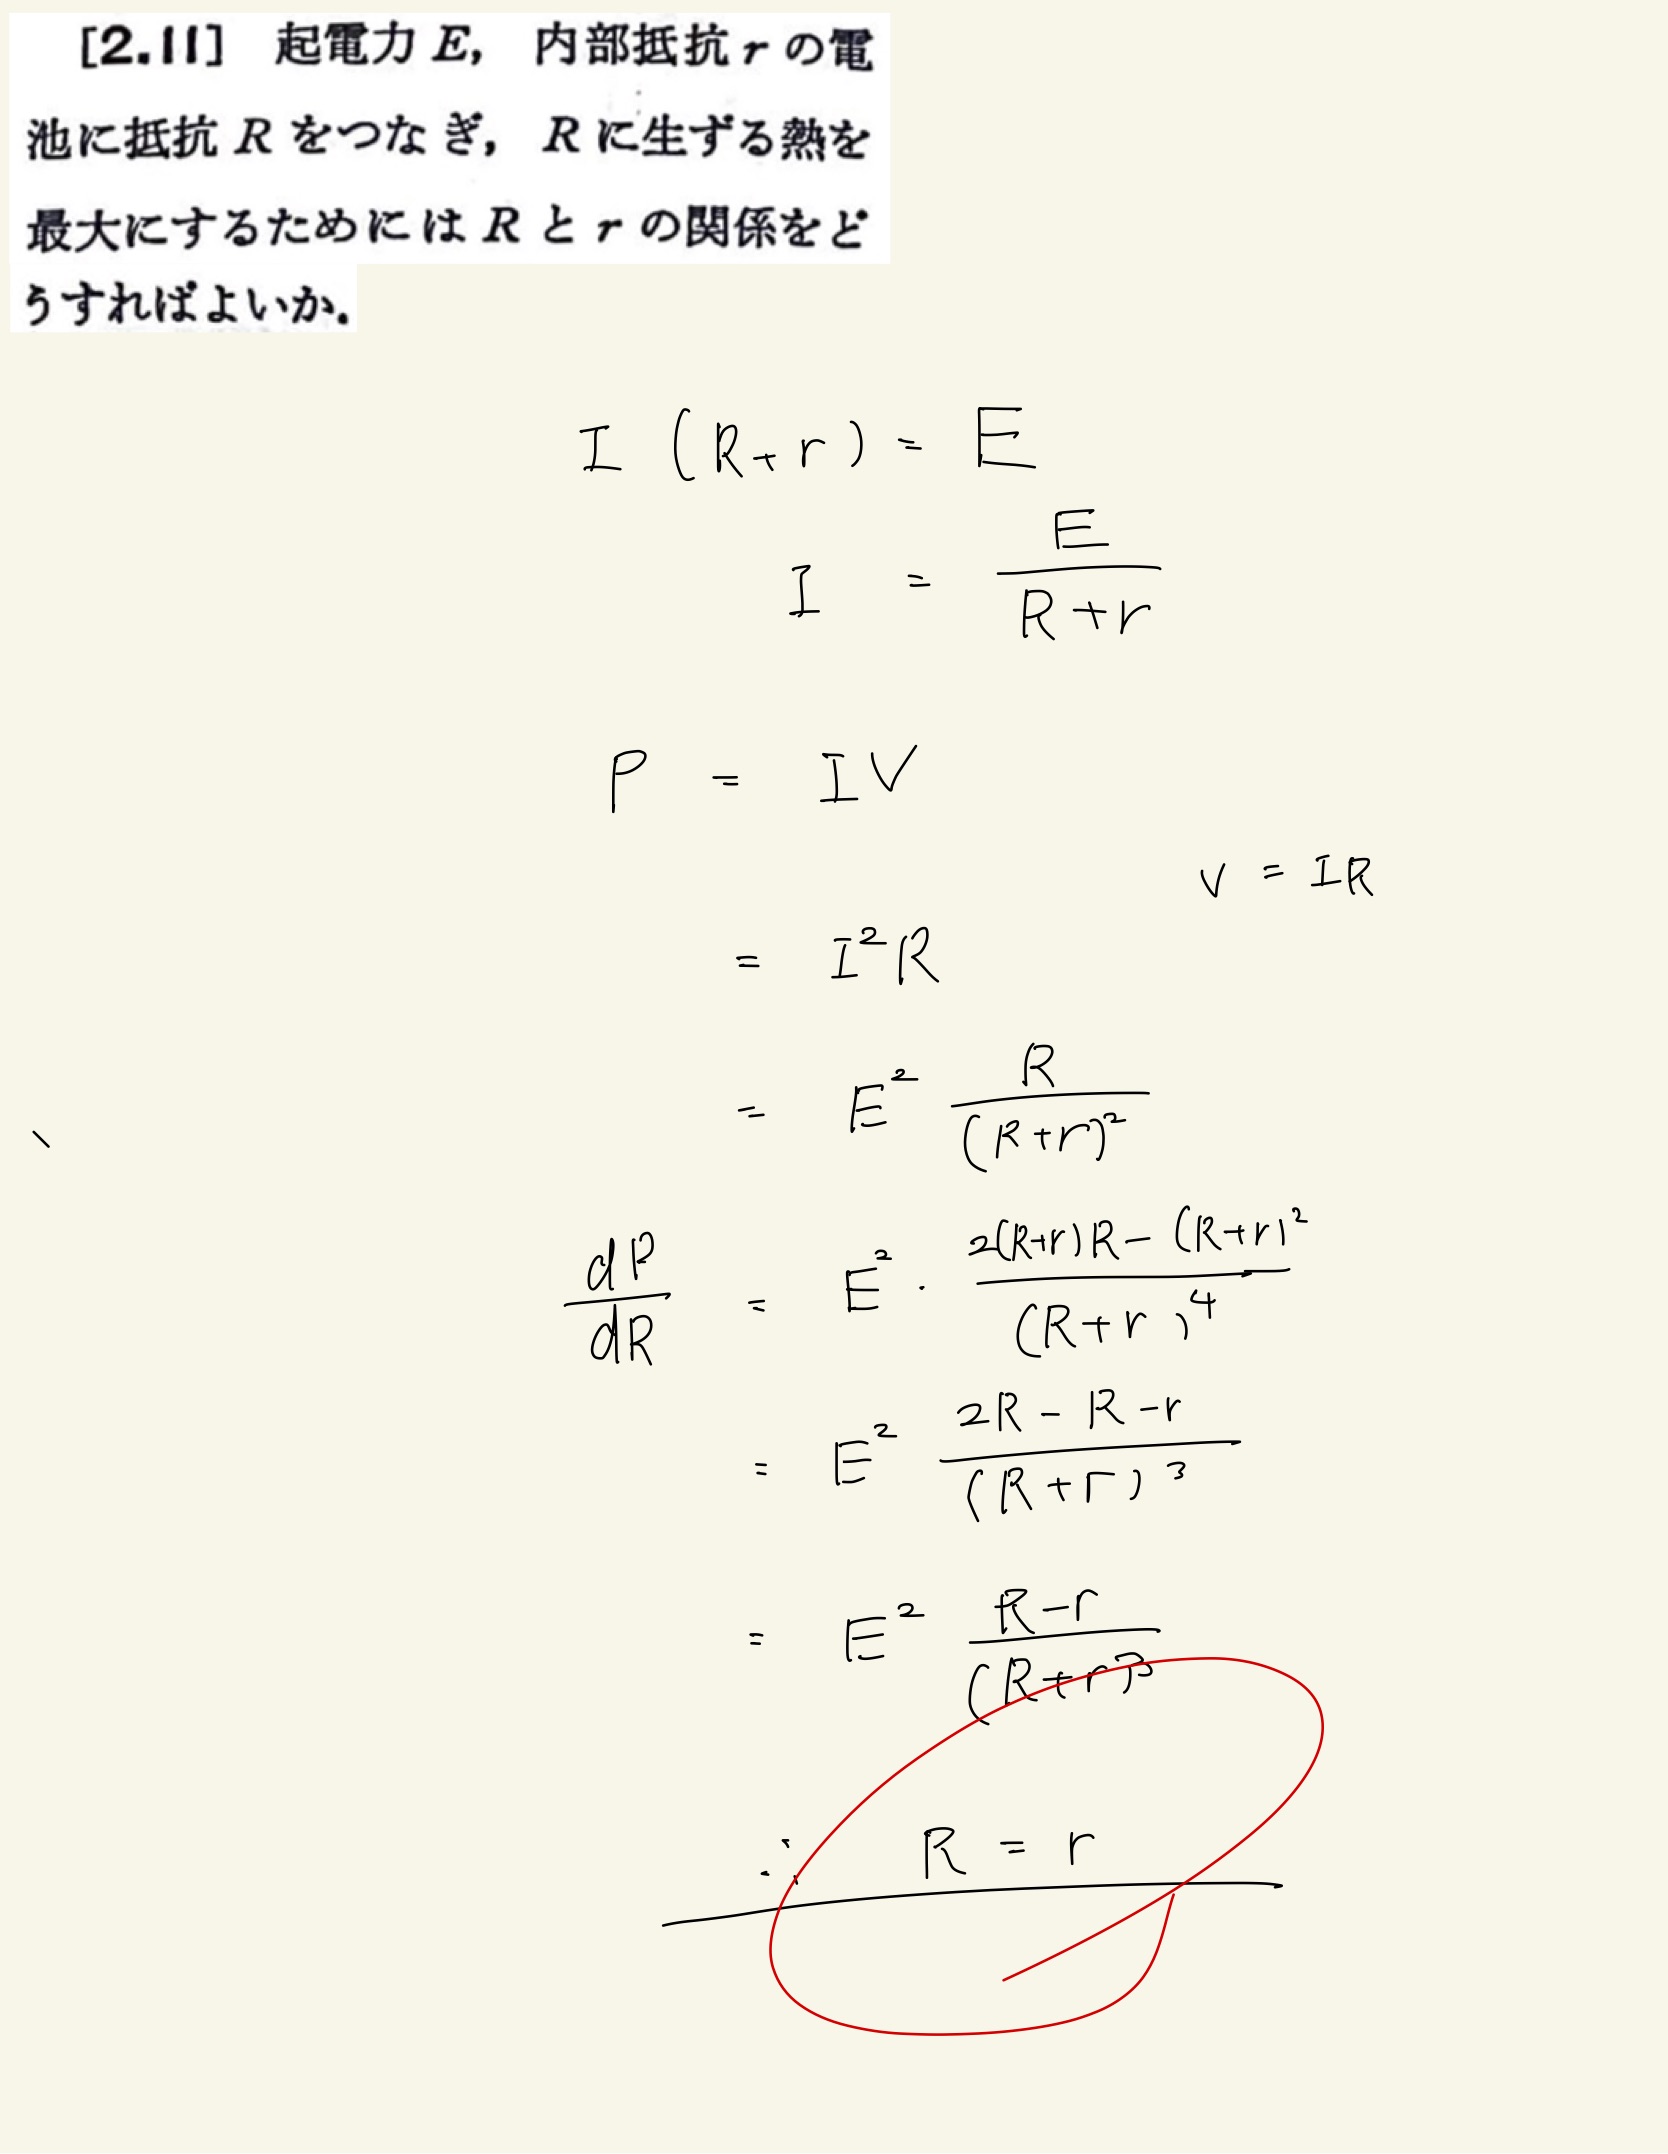 [2.11] 起電力 E, 内部抵抗 r の電
池に抵抗 R をつなぎ, R に生ずる熱を
最大にするためには R と r の関係をど
うすればよいか.
I (R+r) = E
I = E/(R+r)
P = IV
V = IR
= I²R
= E² R/(R+r)²
dP/dR = E² · (2(R+r)R - (R+r)²)/(R+r)⁴
= E² (2R - R - r)/(R+r)³
= E² (R-r)/(R+r)³
∴ R = r